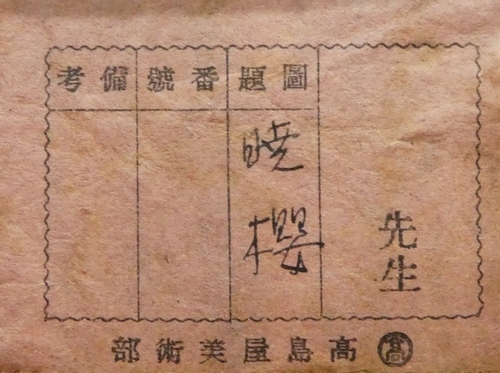 先生
圖題
暁櫻
番號
備考
高 高島屋美術部